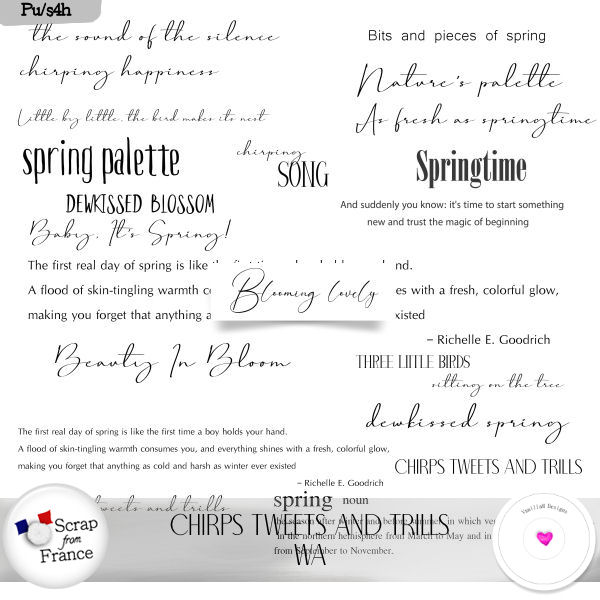 Pu/s4h
the sound of the silence
Bits and pieces of spring
chirping happiness
Nature's palette
Little by little, the bird makes its nest
As fresh as springtime
spring palette
chirping
SONG
Springtime
DEWKISSED BLOSSOM
And suddenly you know: it's time to start something
new and trust the magic of beginning
Baby, It's Spring!
The first real day of spring is like
A flood of skin-tingling warmth
with a fresh, colorful glow,
making you forget that anything
existed
Blooming lovely
– Richelle E. Goodrich
Beauty In Bloom
THREE LITTLE BIRDS
sitting on the tree
dewkissed spring
The first real day of spring is like the first time a boy holds your hand.
A flood of skin-tingling warmth consumes you, and everything shines with a fresh, colorful glow,
making you forget that anything as cold and harsh as winter ever existed
– Richelle E. Goodrich
CHIRPS TWEETS AND TRILLS
tweets and trills
spring noun
CHIRPS TWEETS AND TRILLS
in which
in the northern hemisphere from March to May and in
from September to November.
WA
Scrap
from
France
VanillaM Designs